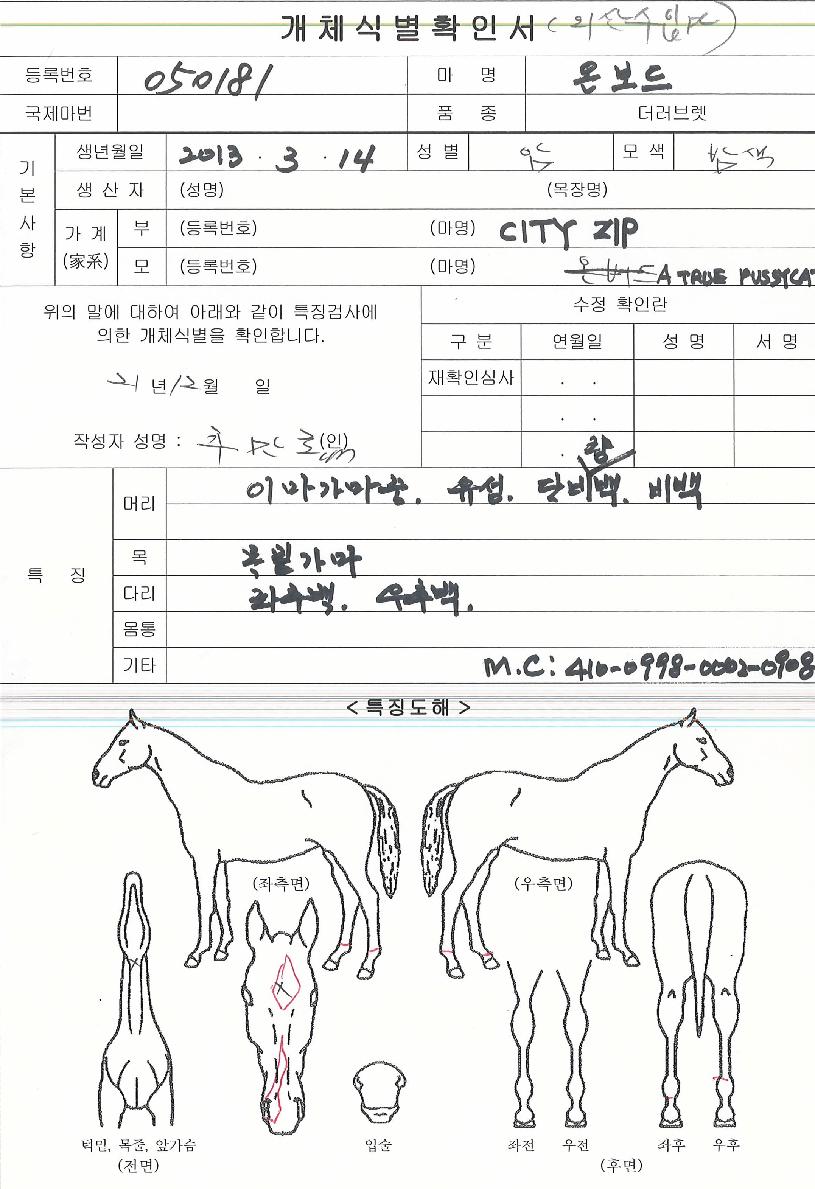 개체식별확인서 (외산수입)
등록번호 050181 마 명 온보드
국제마번 품 종 더러브렛
기본사항
생년월일 2013 . 3 . 14 성 별 암 모 색 밤색
생 산 자 (성명) (목장명)
가 계 (家系)
부 (등록번호) (마명) CITY ZIP
모 (등록번호) (마명) A TRUE PUSSYCAT
위의 말에 대하여 아래와 같이 특징검사에
의한 개체식별을 확인합니다.
21년 12월 일
작성자 성명 : (인)
수정 확인란
구 분 연월일 성 명 서 명
재확인심사 . .
. .
.
특 징
머리 이마가마중. 유성. 단비백. 비백
람
목 목밑가마
다리 좌후백. 우후백.
몸통
기타 M.C: 410-0998-0002-0908
< 특징도해 >
(좌측면) (우측면)
턱밑, 목줄, 앞가슴 입술 좌전 우전 좌후 우후
(전면) (후면)